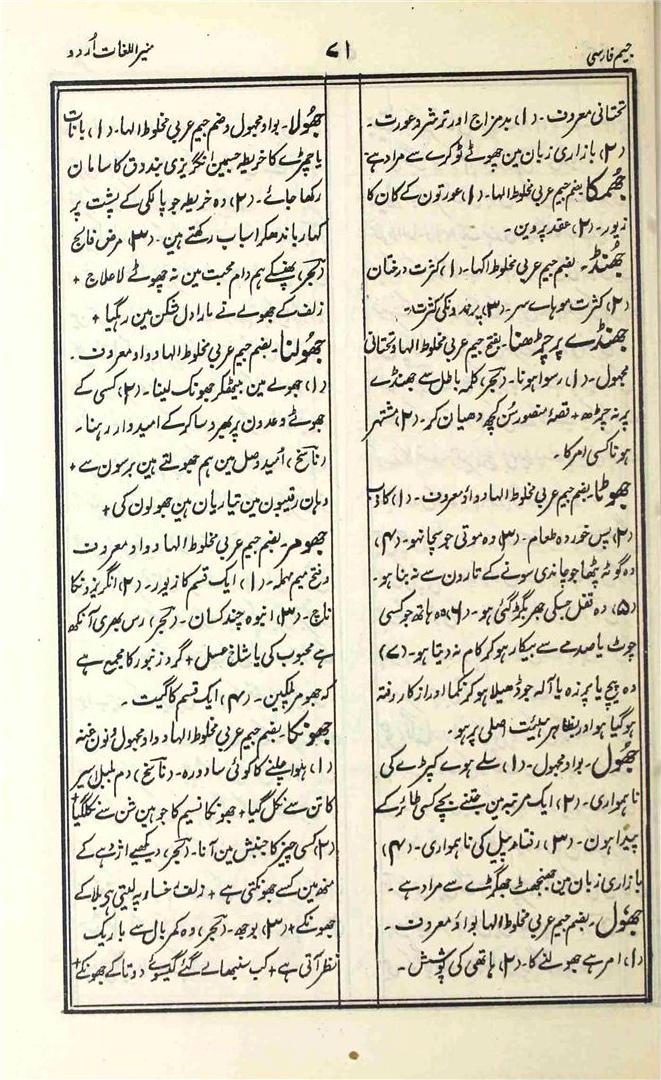 جیم فارسی
۷۱
منیر اللغات اُردو
تحتانی معروف ۔ (۱) بدمزاج اور ترشرو عورت ۔
(۲) بازاری زبان مین چھوٹے ٹوکرے سے مراد ہے
جُھمکا بضم جیم عربی مخلوط الہا۔ (۱) عورتون کے کان کا
زیور۔ (۲) عقد پروین ۔
جُھنڈ۔ بضم جیم عربی مخلوط الہا۔ (۱) کثرت درختان
(۲) کثرت موہاے سر۔ (۳) پرندونکی کثرت۔
جھنڈے پر چڑھنا۔ بفتح جیم عربی مخلوط الہا و تحتانی
مجہول ۔ (۱) رسوا ہونا۔ (بحر) کلمہ باطل سے جھنڈے
پر نہ چڑھ + قصۂ منصور سُن کچھ دھیان کر۔ (۲) مشتہر
ہونا کسی امر کا ۔
جھوٹا۔ بضم جیم عربی مخلوط الہا و واؤ معروف ۔ (۱) کاذب
(۲) پس خوردہ طعام ۔ (۳) وہ موتی جو سچا نہو۔ (۴)
وہ گوٹہ پٹھا جو چاندی سونے کے تارون سے نہ بنا ہو۔
(۵) وہ قفل جسکی جھر بگڑ گئی ہو۔ (۶) وہ ہاتھ جو کسی
چوٹ یا صدمے سے بیکار ہو کر کام نہ دیتا ہو۔ (۷)
وہ پیچ یا پرزہ یا آلہ جو ڈھیلا ہو کر نکما اور از کار رفتہ
ہو گیا ہو اور بظاہر ہئیت اصلی پر ہو۔
جھول۔ بواو مجہول ۔ (۱) سلے ہوے کپڑے کی
ناہمواری۔ (۲) ایک مرتبہ مین جتنے بچے کسی طائر کے
پیدا ہون ۔ (۳) رفتار پیل کی ناہمواری۔ (۴)
بازاری زبان مین جھنجھٹ جھگڑے سے مراد ہے ۔
جُھول ۔ بضم جیم عربی مخلوط الہا بواؤ معروف ۔
(۱) امر ہے جھولنے کا۔ (۲) ہاتھی کی پوشش ۔
جھُولا۔ بواو مجہول و ضم جیم عربی مخلوط الہا۔ (۱) بانات
یا چمڑے کا خریطہ جسمین انگریزی بندوق کا سامان
رکھا جائے۔ (۲) وہ خریطہ جو پالکی کے پشت پر
کہار باندھکر اسباب رکھتے ہین۔ (۳) مرض فالج
(بحر) پھنسکے ہم دام محبت مین نہ چھوٹے لاعلاج +
زلف کے جھولے نے مارا دل شکن مین رہگیا +
جھُولنا۔ بضم جیم عربی مخلوط الہا و واو معروف ۔
(۱) جھولے مین بیٹھکر جھونک لینا۔ (۲) کسی کے
جھوٹے وعدون پر بھروسا کر کے امیدوار رہنا۔
(ناسخ) اُمید وصل مین ہم جھولتے ہین برسون سے +
وہان رقیبون مین تیاریان ہین جھولون کی +
جھومر۔ بضم جیم عربی مخلوط الہا و واو معروف
و فتح میم مہملہ ۔ (۱) ایک قسم کا زیور۔ (۲) انگریزونکا
ناچ۔ (۳) انبوہ چند کسان۔ (بحر) رس بھری آنکھ
ہے محبوب کی یا شاخ عسل + گرد زنبور کا مجمع ہے
کہ جھومر پلکین۔ (۴) ایک قسم کا گیت ۔
جھونکا بضم جیم عربی مخلوط الہا و واو مجہول و نون غنہ
(۱) ہوا چلنے کا کوئی سا دورہ۔ (ناسخ) دم بلبل اسیر
کا تن سے نکل گیا + جھونکا نسیم کا جوہین سَن سے نکلگیا +
(۲) کسی چیز کا جنبش مین آنا۔ (بحر) دیکھیے اژدہے کے
منھ مین کسے جھونکتی ہے + زلف رخسار پہ لیتی ہی بلا کے
جھونکے + (۳) بوجھ۔ (بحر) وہ کمر بال سے باریک
نظر آتی ہے + کب سنبھالے گئے گیسوئے دوتا کے جھونکے +